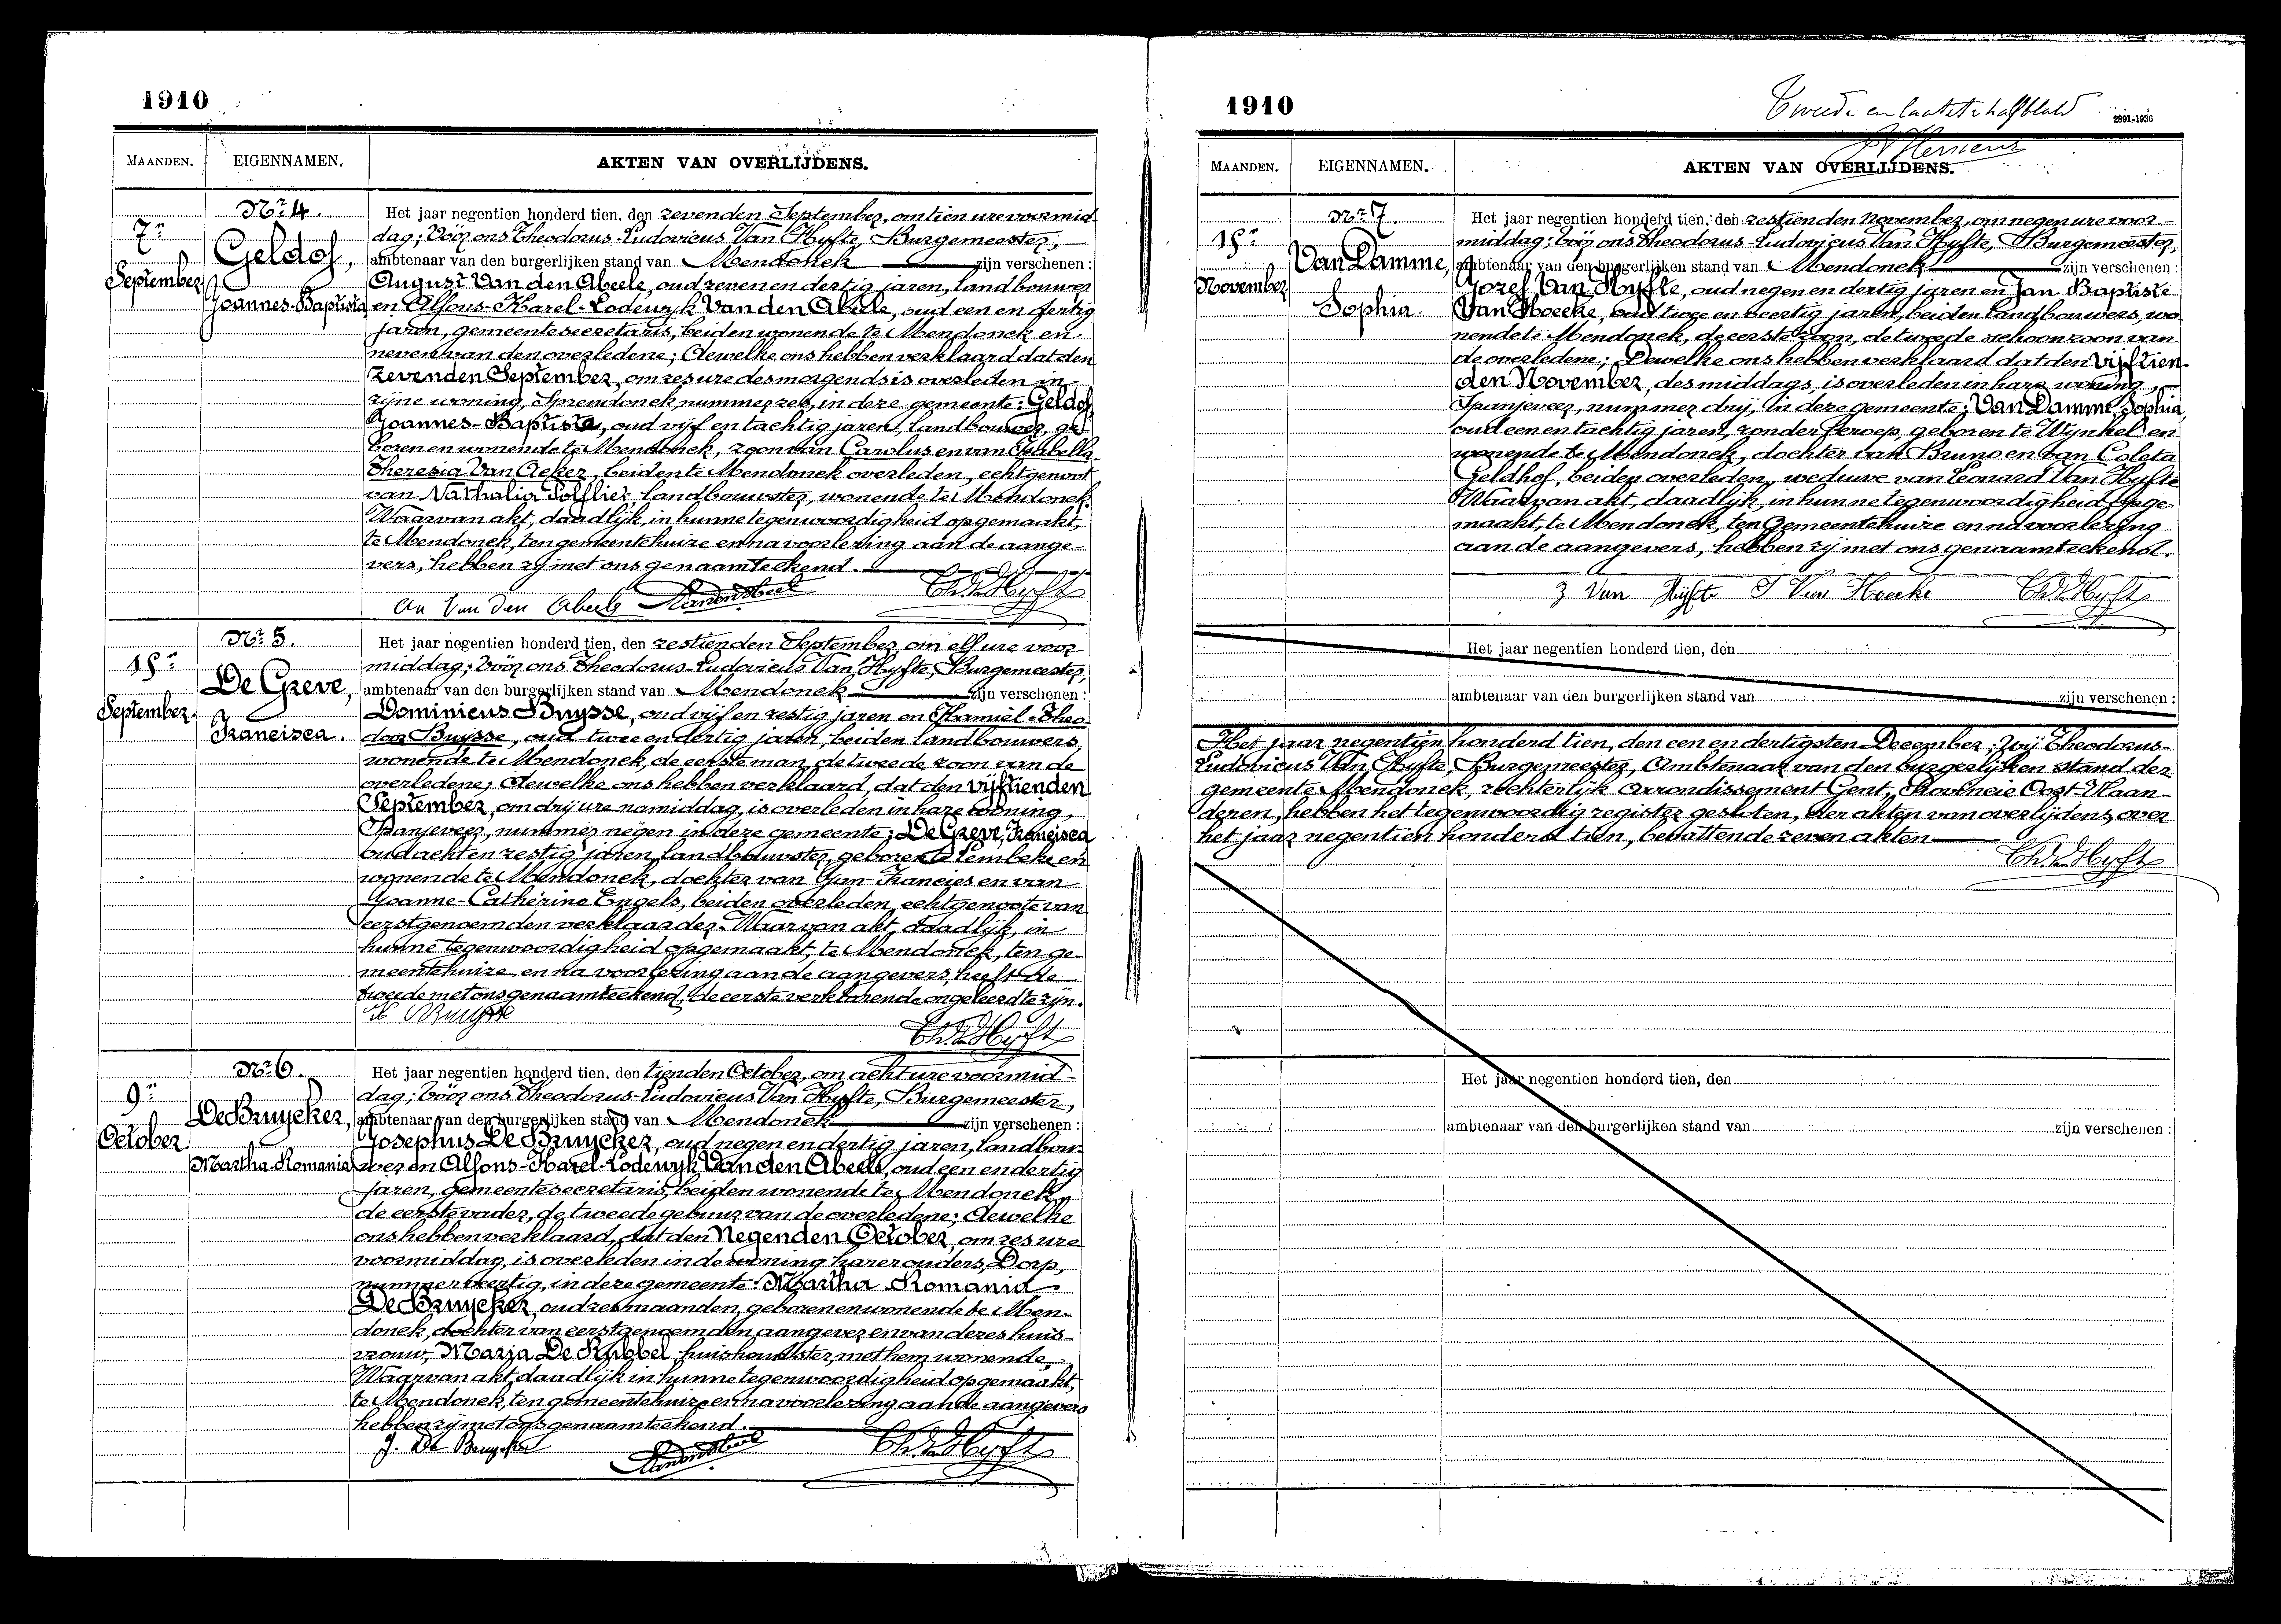 1910
MAANDEN. EIGENNAMEN. AKTEN VAN OVERLIJDENS.
Nr 4.
7n
September
Geldof,
Joannes-Baptista
Het jaar negentien honderd tien, den zevenden September, om tien ure voormid-
dag; vóór ons Theodorus-Ludovicus Van Hyfte, Burgemeester,
ambtenaar van den burgerlijken stand van Mendonck zijn verschenen:
August Van den Abeele, oud zeven en dertig jaren, landbouwer
en Alfons-Karel-Lodewyk Van den Abeele, oud een en dertig
jaren, gemeentesecretaris, beiden wonende te Mendonck en
neven van den overledene; dewelke ons hebben verklaard dat den
zevenden September, om zes ure des morgends is overleden in
zijne woning, Sprendonck nummer zes, in deze gemeente: Geldof
Joannes-Baptista, oud vijf en tachtig jaren, landbouwer, ge-
boren en wonende te Mendonck, zoon van Carolus en van Isabella
Theresia Van Acker, beiden te Mendonck overleden, echtgenoot
van Nathalia Solflier landbouwster, wonende te Mendonck.
Waarvan akt, daadlijk, in hunne tegenwoordigheid opgemaakt,
te Mendonck, ten gemeentehuize en na voorlezing aan de aange-
vers, hebben zij met ons genaamteekend.
Au Van den Abeele
Th. V. Hyfte
Nr 5.
15n
September
De Greve,
Francisca.
Het jaar negentien honderd tien, den zestienden September, om elf ure voor-
middag; vóór ons Theodorus-Ludovicus Van Hyfte, Burgemeester,
ambtenaar van den burgerlijken stand van Mendonck zijn verschenen:
Dominicus Buysse, oud vijf en zestig jaren en Kamiel-Theo-
door Buysse, oud twee en dertig jaren, beiden landbouwers,
wonende te Mendonck, de eerste man, de tweede zoon van de
overledene; dewelke ons hebben verklaard, dat den vijftienden
September, om drij ure namiddag, is overleden in hare woning,
Spanjeveer, nummer negen in deze gemeente; De Greve, Francisca
oud acht en zestig jaren, landbouwster, geboren te Lembeke en
wonende te Mendonck, dochter van Jan-Francies en van
Joanne-Catherine Engels, beiden overleden, echtgenoote van
eerstgenoemden verklaarder. Waarvan akt, daadlijk, in
hunne tegenwoordigheid opgemaakt, te Mendonck, ten ge-
meentehuize en na voorlezing aan de aangevers, heeft de
tweede met ons genaamteekend, de eerste verklarende ongeleerd te zijn.
K Buysse
Th. V. Hyfte
Nr 6.
9n
October
De Bruycker,
Martha-Romania
Het jaar negentien honderd tien, den tienden October, om acht ure voormid-
dag; vóór ons Theodorus-Ludovicus Van Hyfte, Burgemeester,
ambtenaar van den burgerlijken stand van Mendonck zijn verschenen:
Josephus De Bruycker, oud negen en dertig jaren, landbou-
wer en Alfons-Karel-Lodewyk Van den Abeele, oud een en dertig
jaren, gemeentesecretaris, beiden wonende te Mendonck,
de eerste vader, de tweede gebuur van de overledene; dewelke
ons hebben verklaard, dat den Negenden October, om zes ure
voormiddag, is overleden in de woning harer ouders, Dorp,
nummer veertig, in deze gemeente: Martha Romania
De Bruycker, oud zes maanden, geboren en wonende te Men-
donck, dochter van eerstgenoemden aangever en van deres huis-
vrouw, Maria De Kribbel, huishoudster, met hem wonende.
Waarvan akt daadlijk in hunne tegenwoordigheid opgemaakt,
te Mendonck, ten gemeentehuize en na voorlezing aan de aangevers
hebben zij met ons genaamteekend.
J. De Bruycker
Th. V. Hyfte
1910
Tweede en laatste halfblad
2891-1936
MAANDEN. EIGENNAMEN. AKTEN VAN OVERLIJDENS.
Nr 7.
15n
November
Van Damme,
Sophia.
Het jaar negentien honderd tien, den zestienden November, om negen ure voor-
middag; vóór ons Theodorus-Ludovicus Van Hyfte, Burgemeester,
ambtenaar van den burgerlijken stand van Mendonck zijn verschenen:
Jozef Van Hyfte, oud negen en dertig jaren en Jan Baptiste
Van Hoecke, oud twee en veertig jaren, beiden landbouwers, wo-
nende te Mendonck, de eerste zoon, de tweede schoonzoon van
de overledene; Dewelke ons hebben verklaard dat den vijftien-
den November, des middags is overleden in hare woning,
Spanjeveer, nummer drij, in deze gemeente; Van Damme, Sophia,
oud een en tachtig jaren, zonder beroep, geboren te Wynkel en
wonende te Mendonck, dochter van Bruno en van Coleta
Geldhof, beiden overleden, weduwe van Leonard Van Hyfte
Waarvan akt, daadlijk, in hunne tegenwoordigheid opge-
maakt, te Mendonck, ten Gemeentehuize en na voorlezing
aan de aangevers, hebben zij met ons genaamteekend.
J Van Hyfte J Van Hoecke Th. V. Hyfte
Het jaar negentien honderd tien, den
ambtenaar van den burgerlijken stand van zijn verschenen:
Het jaar negentien honderd tien, den een en dertigsten December; Wij Theodorus-
Ludovicus Van Hyfte, Burgemeester, Ambtenaar van den burgerlijken stand der
gemeente Mendonck, rechterlijk arrondissement Gent, Provincie Oost-Vlaan-
deren, hebben het tegenwoordig register gesloten, der akten van overlijdens, over
het jaar negentien honderd tien, bevattende zeven akten
Th. V. Hyfte
Het jaar negentien honderd tien, den
ambtenaar van den burgerlijken stand van zijn verschenen: